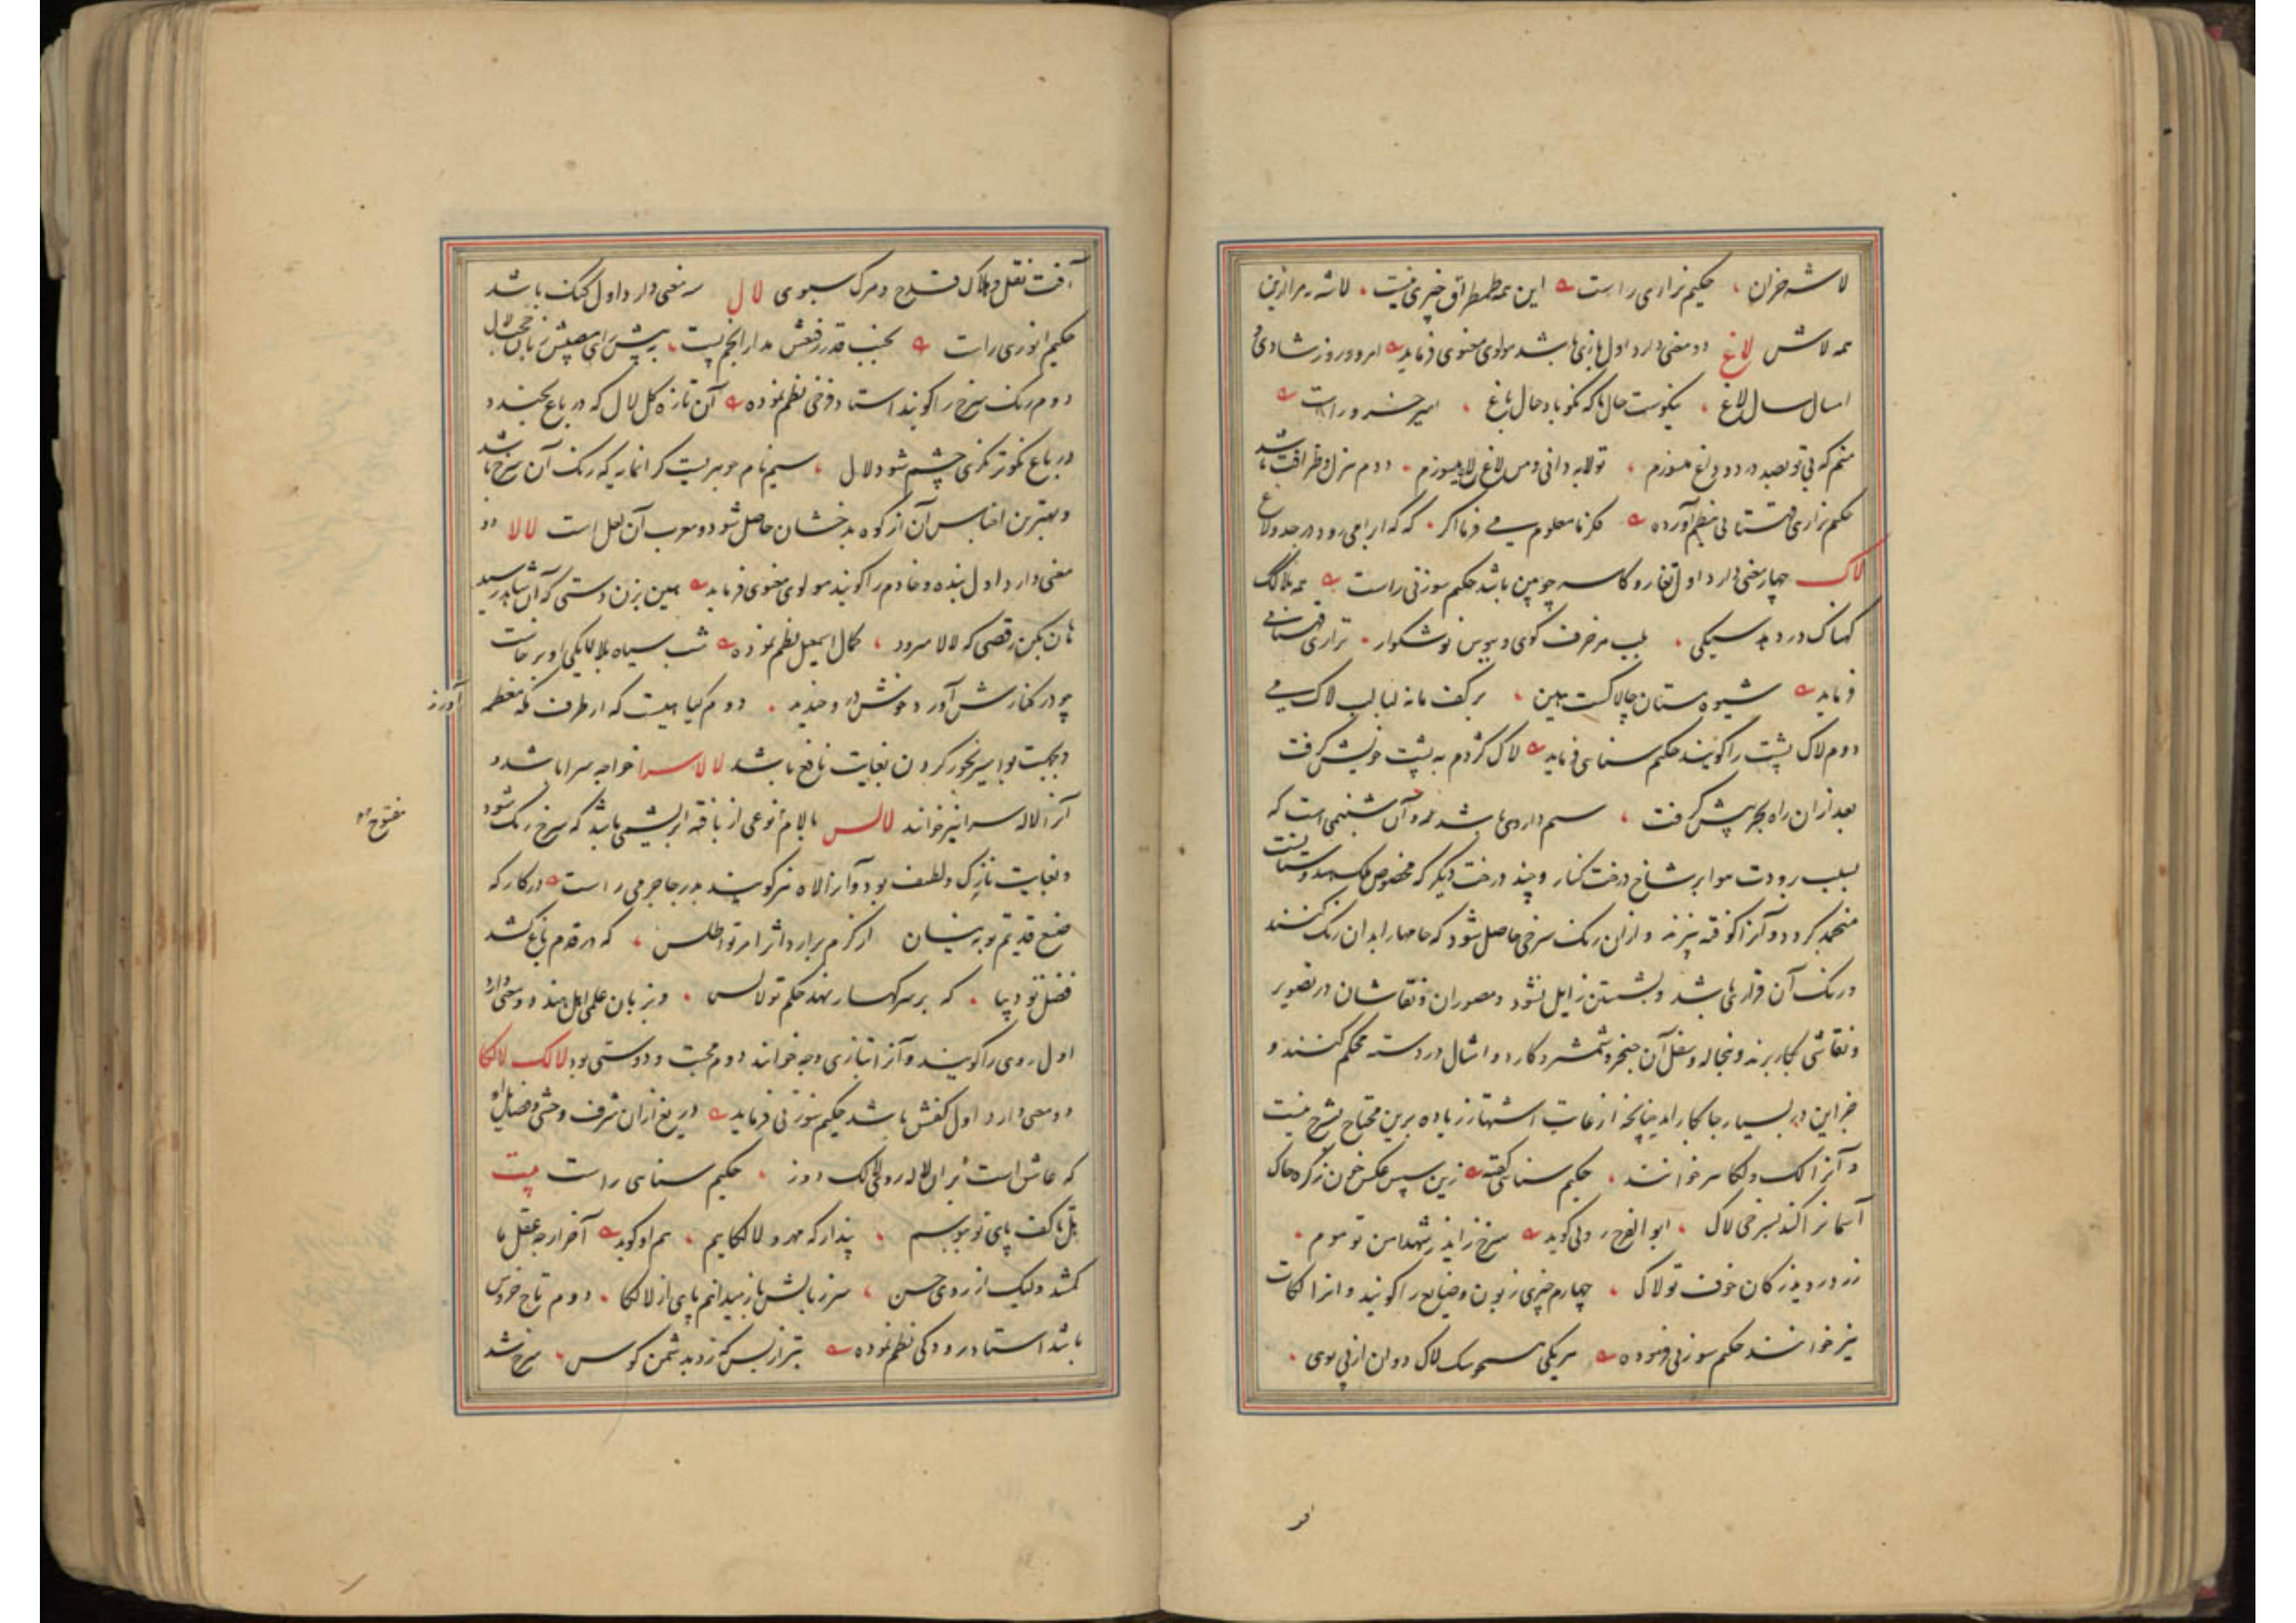 لاشه خران ، حکیم نزاری راست این همه طمطراق خبری نیست . لاشه مرا ازین
همه لاش لاغ دو معنی دارد اول بازی باشد مولوی معنوی فرماید امروز روز شادی و
امسال سال لاغ . نیکوست حال ما که نکو باد حال باغ . امیر خسرو راست
منم که بی تو بصد درد و داغ میسوزم ، تو لابه دانی و من لاغ لاغ میسوزم . دوم هزل و ظرافت باشد
حکیم نزاری قهستانی بنظم آورده فکر نامعلوم می فرما اگر . که گه ابرامی رود در جد و لاغ
لاک چهار معنی دارد اول تغار و کاسه چوبین باشد حکیم سوزنی راست همه
کهناک دردبد سیکی . بلب هر خرف گوی و بیوس نوشگوار . نزاری قهستانی
فرماید شیوه مستان چالاکست هین ، بر کف ما نه لبالب لاک می
دوم لاک پشت را گویند حکیم سنائی فرماید لاک کژدم به پشت خویش گرفت
بعد از آن راه بحر پیش گرفت ، سیم داروی باشد و آن شبنمی است که
بسبب رودت هوا بر شاخ درخت کنار و چند درخت دیگر که مخصوص ملک هند وستانست
منجمد گردد و آنرا کوفته بپزند و ازان رنگ سرخی حاصل شود که جامها را بدان رنگ کنند
و رنگ آن قرار باشد و بشستن زایل نشود و مصوران و نقاشان در تصویر
و نقاشی بکار برند و نخاله و سفل آن خنجر و شمشیر و کارد و امثال در دسته محکم کنند و
جز این در بسیار جا بکار اید چنانچه از غایت اشتهار زیاده برین محتاج بشرح نیست
و آنرا لک و لکا نیز خوانند ، حکیم سنائی گفته زین سپس عکس خون زکره خاک
آسمانرا کند بسرخی لاک . ابو الفرج رونی گوید سرخ زاید ز شهد امن تو موم .
زرد روید ز کان خوف تو لاک ، چهارم چیزی زبون و ضایع را گویند و انرا لکات
نیز خوانند حکیم سوزنی فرموده هر یکی همچو سک لاک دوان از پی بوی .
افت
آفت نقل و هلاک قدح و مرک سبوی لال سه معنی دارد اول گنگ باشد
حکیم انوری راست بجنب قدر رفیعش مدار انجم پست ، به پیش رای مصیبش زبان حجت لال
دوم رنگ سرخ را گویند استاد فرخی نظم نموده آن تازه گل لال که در باغ بخندد
در باغ نکوتر نگری چشم شود لال ، سیم نام جوهریست گرانمایه که رنگ آن سرخ باشد
و بهترین اجناس آن از کوه بدخشان حاصل شود و معرب آن لعل است لالا دو
معنی دارد اول بنده و خادم را گویند مولوی معنوی فرماید همین بزن دستی که آن شاهد رسید
هان بکن رقصی که لالا میرود ، کمال اسمعیل نظم نموده شب سیاه بلالایکی او برخاست
چو در کنارش آورد و خوش در و خندید . دوم گیاهیست که از طرف مکه معظمه آورند
و بجهت بواسیر بخور کردن بغایت نافع باشد لالاسرا خواجه سرا باشد و
آنرا لاله سرا نیز خوانند لالس بالام مفتوح نوعی از بافته ابریشمی باشد که سرخ رنگ شود
و بغایت نازک و لطیف بود و آنرا لاه نیز گویند بدر جاجرمی راست در کار که
صنع قدیم تو به نیسان از کرم برارد اثر امر تو اطلس ، که در قدم باغ کشد
فضل تو دیبا . که بر سر کهسار نهد حکم تو لالس . و بزبان علمی اهل هند دو معنی دارد
اول روی را گویند و آنرا بتازی وجه خوانند دوم محبت و دوستی بود لالک لالکا
دو معنی دارد اول کفش باشد حکیم سوزنی فرماید دریغ ازان شرف و خشی و ضیائی او
که عاشق است بران لاله روی لالک دوز ، حکیم سنائی راست بیت
بل تا کف پای تو ببوسم . پندار که مهر و لالکاییم . هم او گوید آخر ارچه عقل ما
گم شد ولیک از روی حس . سر ز بالش باز میدانیم پای از لالکا . دوم تاج خروس
باشد استاد رودکی نظم نموده تیز ازبس که زد بدشمن کوس . سرخ شد